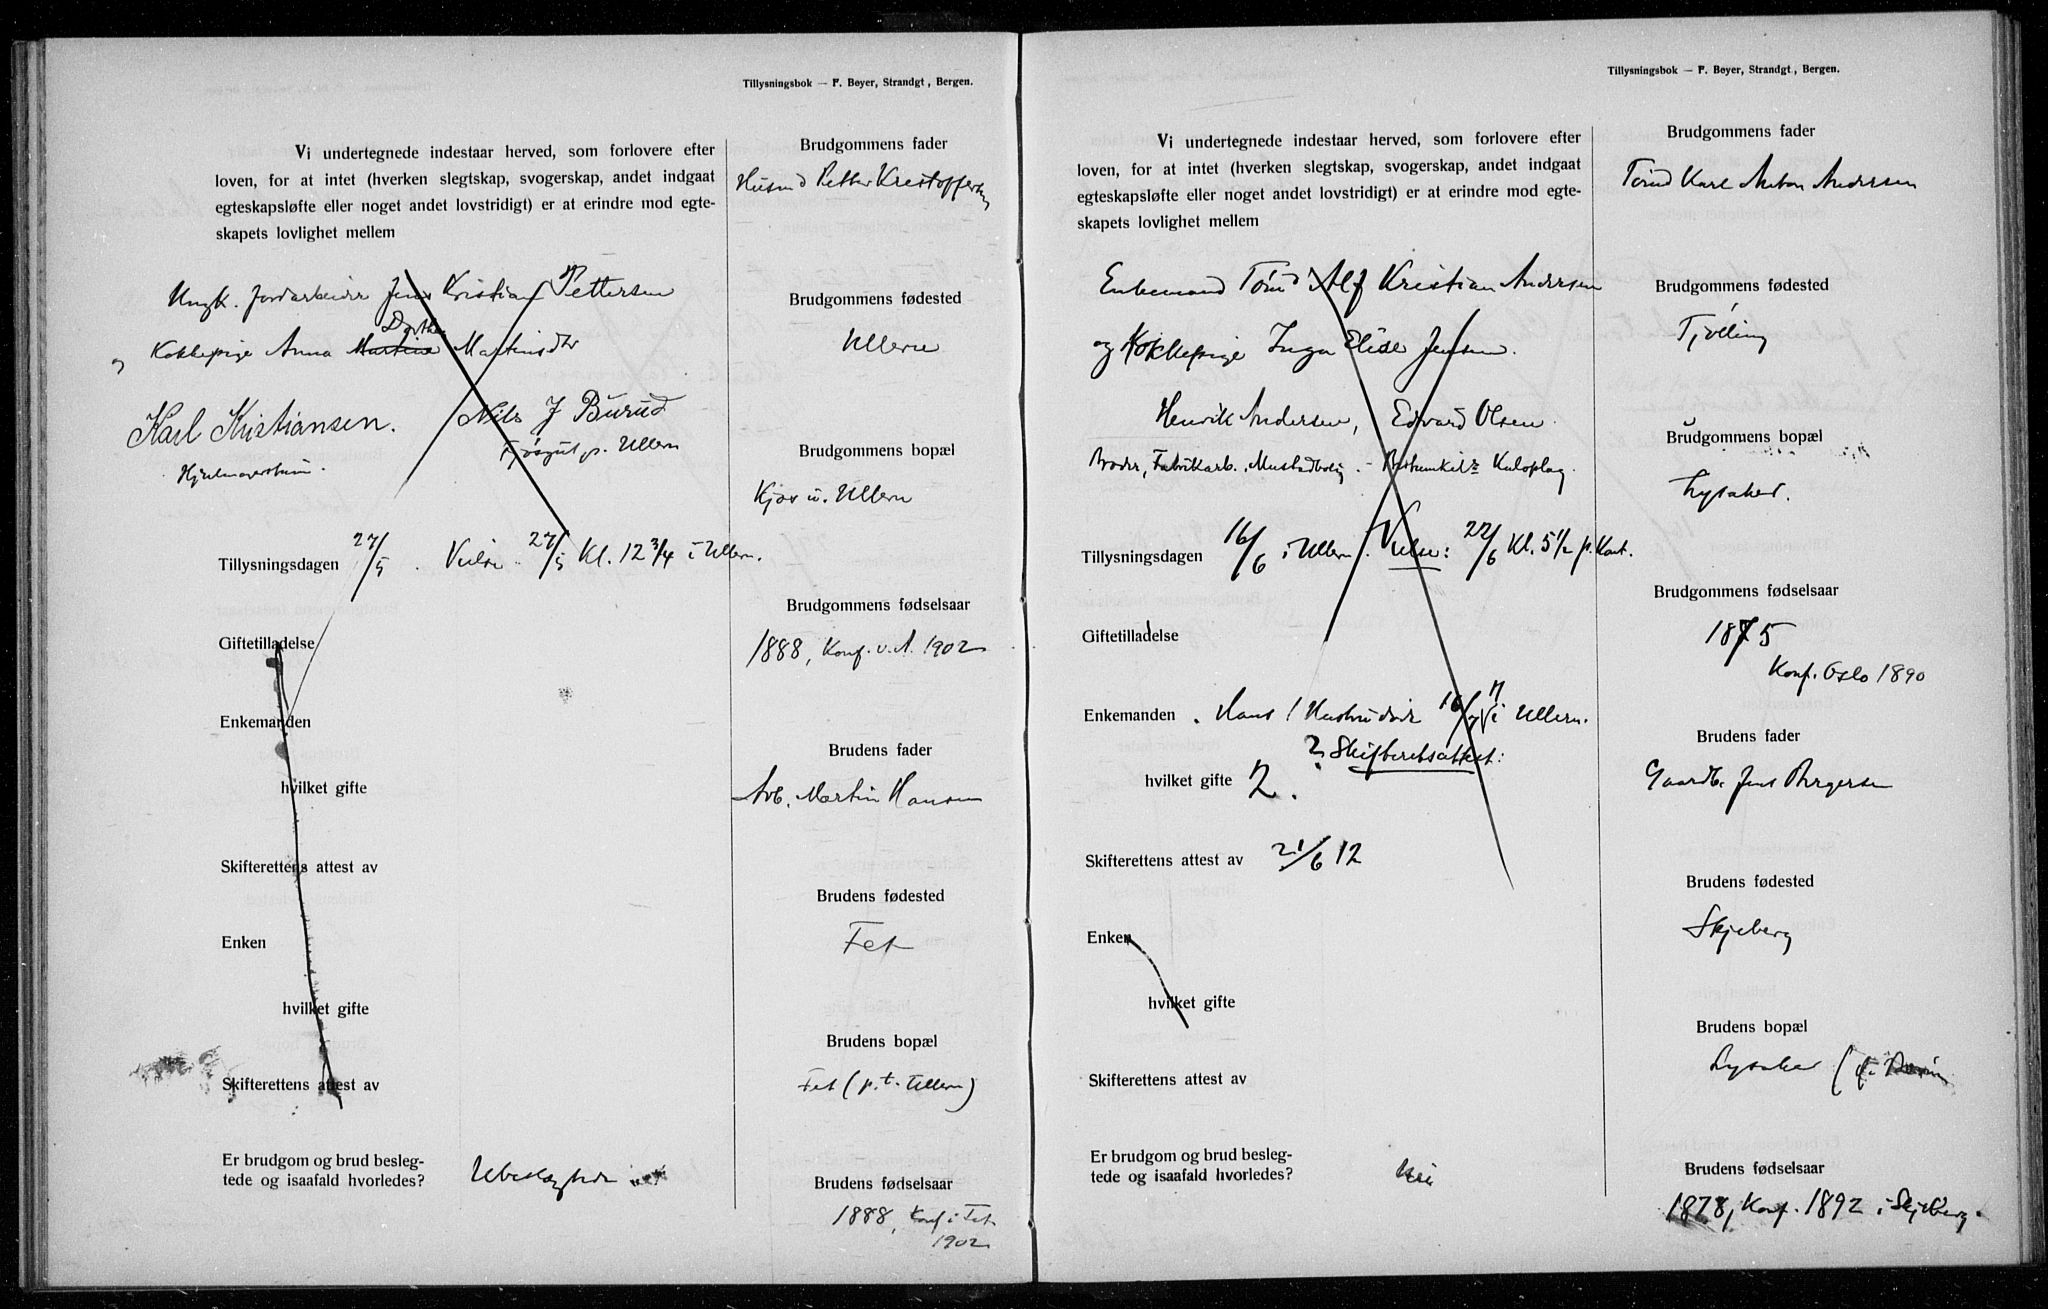 Tillysningsbok — F. Beyer, Strandgt., Bergen.
Vi undertegnede indestaar herved, som forlovere efter
loven, for at intet (hverken slegtskap, svogerskap, andet indgaat
egteskapsløfte eller noget andet lovstridigt) er at erindre mod egte-
skapets lovlighet mellem
Ungk. Jordarbeider Jens Kristian Pettersen
Dorthea
og Kokkepige Anna Martine Martinsdtr
Karl Kristiansen. Nils J Burud
p. Ullern
Tillysningsdagen 27/5. Vielse 27/5 Kl. 12 3/4 i Ullern.
Giftetilladelse
Enkemanden
hvilket gifte
Skifterettens attest av
Enken
hvilket gifte
Skifterettens attest av
Er brudgom og brud besleg-
tede og isaafald hvorledes? Ubeslægtede
Brudgommens fader
Husmd Petter Kristoffersen
Brudgommens fødested
Ullern
Brudgommens bopæl
Ullern
Brudgommens fødselsaar
1888, Konf. v. A. 1902
Brudens fader
Arb. Martin Hansen
Brudens fødested
Fet
Brudens bopæl
Fet (p. t. Ullern)
Brudens fødselsaar
1888, Konf i Fet
1902
Tillysningsbok — F. Beyer, Strandgt., Bergen.
Vi undertegnede indestaar herved, som forlovere efter
loven, for at intet (hverken slegtskap, svogerskap, andet indgaat
egteskapsløfte eller noget andet lovstridigt) er at erindre mod egte-
skapets lovlighet mellem
Enkemand Tømd Alf Kristian Andersen
og Kokkepige Inga Elise Jensen.
Henrik Andersen, Edvard Olsen.
Broder, Fabrikarb.
Tillysningsdagen 16/6 i Ullern. Vielse: 22/6 Kl. 5 1/2 p. Kont.
Giftetilladelse
Enkemanden. Hans 1 Hustru døde 16/7 11 i Ullern.
? Skifteretsattest:
hvilket gifte 2.
Skifterettens attest av 21/6 12
Enken
hvilket gifte
Skifterettens attest av
Er brudgom og brud besleg-
tede og isaafald hvorledes? Nei
Brudgommens fader
Tømd Karl Anton Andersen
Brudgommens fødested
Tjølling
Brudgommens bopæl
Lysaker.
Brudgommens fødselsaar
1875
Konf. Oslo 1890
Brudens fader
Gaardb. Jens Birgersen
Brudens fødested
Skjeberg
Brudens bopæl
Lysaker
Brudens fødselsaar
1878, Konf. 1892 i Skjeberg.